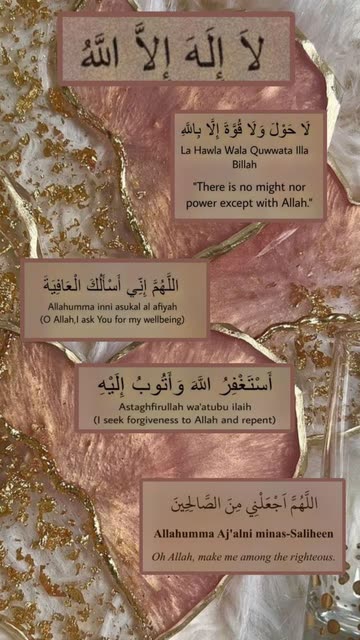 لاَ إِلَهَ إِلاَّ اللَّهُ
لَا حَوْلَ وَلَا قُوَّةَ إِلَّا بِاللَّهِ
La Hawla Wala Quwwata Illa
Billah
"There is no might nor
power except with Allah."
اللَّهُمَّ إِنِّي أَسْأَلُكَ الْعَافِيَةَ
Allahumma inni asukal al afiyah
(O Allah,I ask You for my wellbeing)
أَسْتَغْفِرُ اللَّهَ وَأَتُوبُ إِلَيْهِ
Astaghfirullah wa'atubu ilaih
(I seek forgiveness to Allah and repent)
اللَّهُمَّ اجْعَلْنِي مِنَ الصَّالِحِينَ
Allahumma Aj'alni minas-Saliheen
Oh Allah, make me among the righteous.